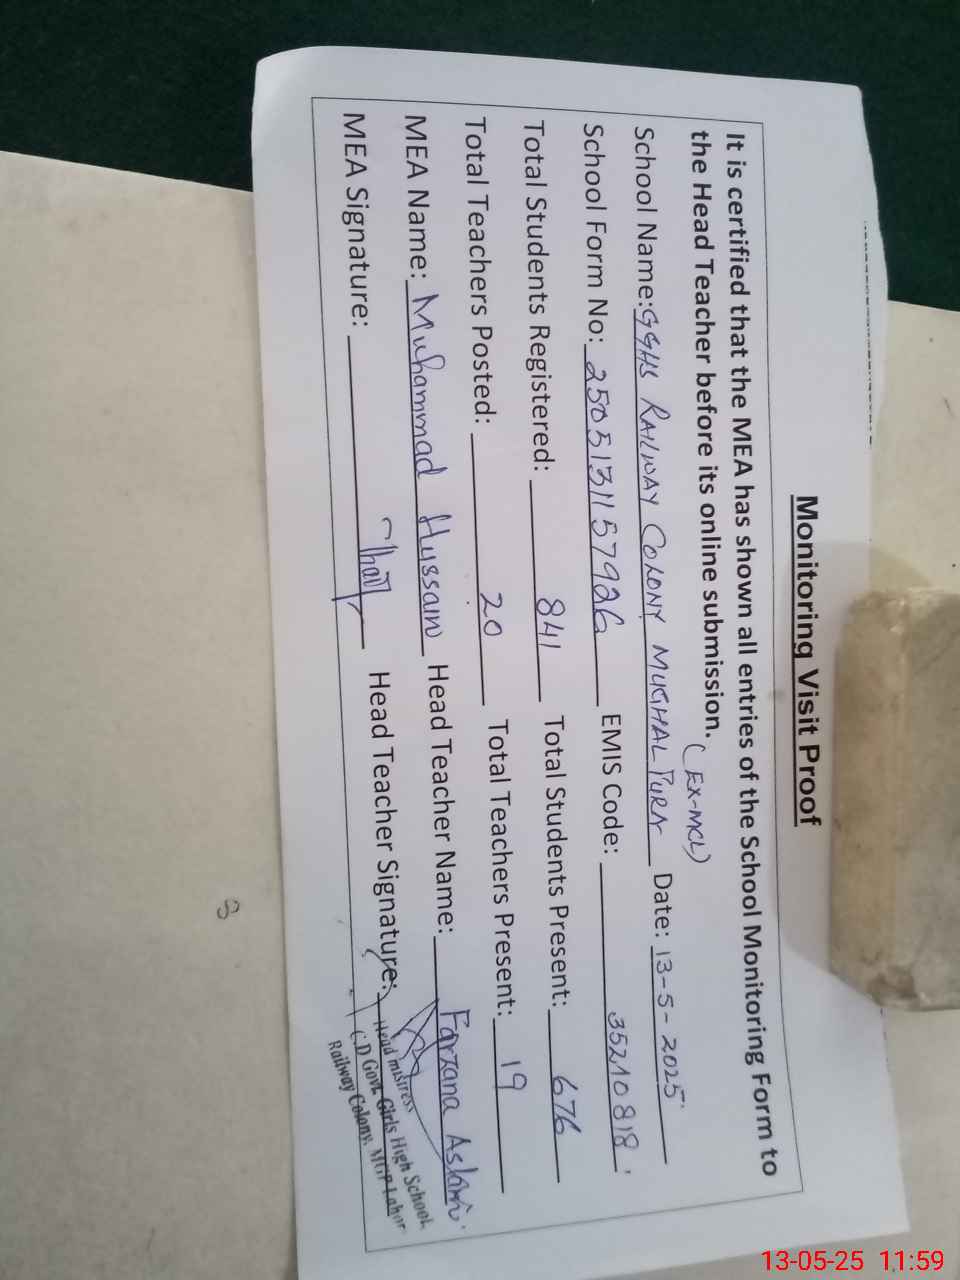 Monitoring Visit Proof
It is certified that the MEA has shown all entries of the School Monitoring Form to
the Head Teacher before its online submission.
(EX-MCL)
School Name: GGHS RAILWAY COLONY MUGHAL PURA Date: 13-5-2025
School Form No: 2505131157926 EMIS Code: 35210818
Total Students Registered: 841 Total Students Present: 676
Total Teachers Posted: 20 Total Teachers Present: 19
MEA Name: Muhammad Hussain Head Teacher Name: Farzana Aslam
MEA Signature: Head Teacher Signature:
Head mistress
C.D Govt. Girls High School,
Railway Colony, MGP Lahor
13-05-25 11:59